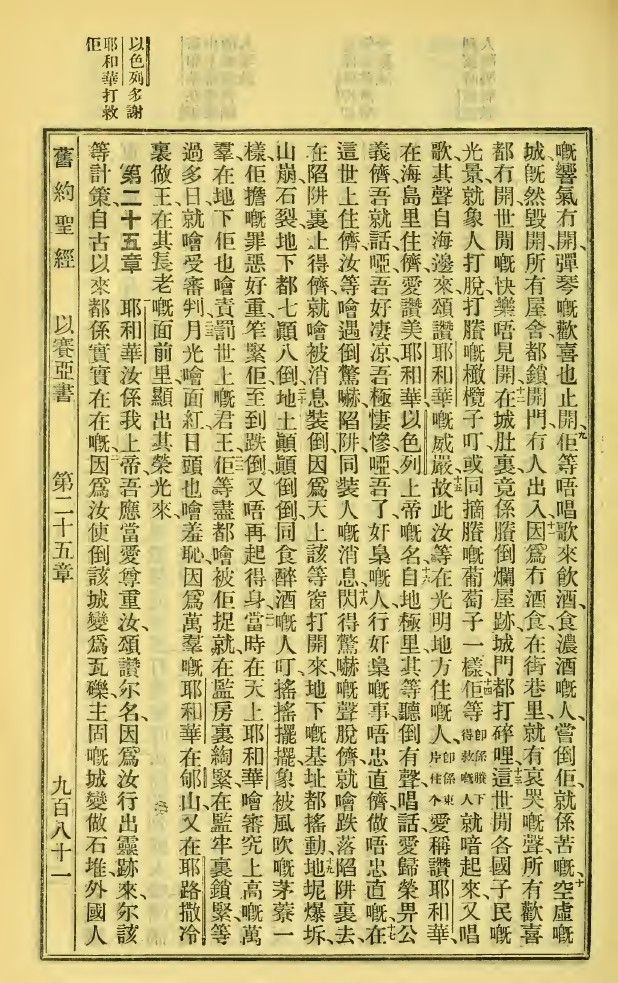 以色列多謝
耶和華打救
佢
嘅響氣冇開、彈琴嘅歡喜也止開、九佢等唔唱歌來飲酒、食濃酒嘅人、當倒佢就係苦嘅、十空虛嘅
城、旣然毀開、所有屋舍都鎖開門、冇人出入、十一因爲冇酒食、在街巷里就有哀哭嘅聲、所有歡喜
都冇開、世間嘅快樂唔見開、十二在城肚裏竟係賸倒爛屋跡、城門都打碎哩、十三這世間各國子民嘅
光景、就象人打脫打賸嘅橄欖子叮、或同摘賸嘅葡萄子一樣、十四佢等卽係賸下得救嘅人就喑起來、又唱
歌、其聲自海邊來、頌讚耶和華嘅威嚴、十五故此汝等在光明地方住嘅人、卽係東片住个愛稱讚耶和華、
在海島里住儕、愛讚美耶和華以色列上帝嘅名、十六自地極里其等聽倒有聲、唱話、愛歸榮畀公
義儕、吾就話、啞、吾好凄涼、吾極悽慘、啞、吾了、奸梟嘅人行奸梟嘅事、唔忠直儕做唔忠直嘅、十七在
這世上住儕、汝等噲遇倒驚嚇、陷阱、同裝人嘅消息、十八閃得驚嚇嘅聲脫儕、就噲跌落陷阱裏去、
在陷阱裏上得儕、就噲被消息裝倒、因爲天上該等窗打開來、地下嘅基址都搖動、十九地坭爆坼、
山崩石裂、地下都七顚八倒、二十地土顚顚倒倒、同食醉酒嘅人叮、搖搖擺擺、象被風吹嘅茅藔一
樣、佢擔嘅罪惡好重、笮緊佢、至到跌倒、又唔再起得身、二一當時在天上耶和華噲審究上高嘅萬
羣、在地下佢也噲責罰世上嘅君王、二二佢等盡都噲被佢捉、就在監房裏綯緊、在監牢裏鎖緊等、
過多日、就噲受審判、二三月光噲面紅、日頭也噲羞恥、因爲萬羣嘅耶和華在郇山、又在耶路撒冷
裏做王、在其長老嘅面前里顯出其榮光來、
第二十五章 一耶和華、汝係我上帝、吾應當愛尊重汝、頌讚尔名、因爲汝行出靈跡來、尔該
等計策、自古以來都係實實在在嘅、二因爲汝使倒該城變爲瓦礫、主固嘅城變做石堆、外國人
舊約聖經 以賽亞書 第二十五章 九百八十一